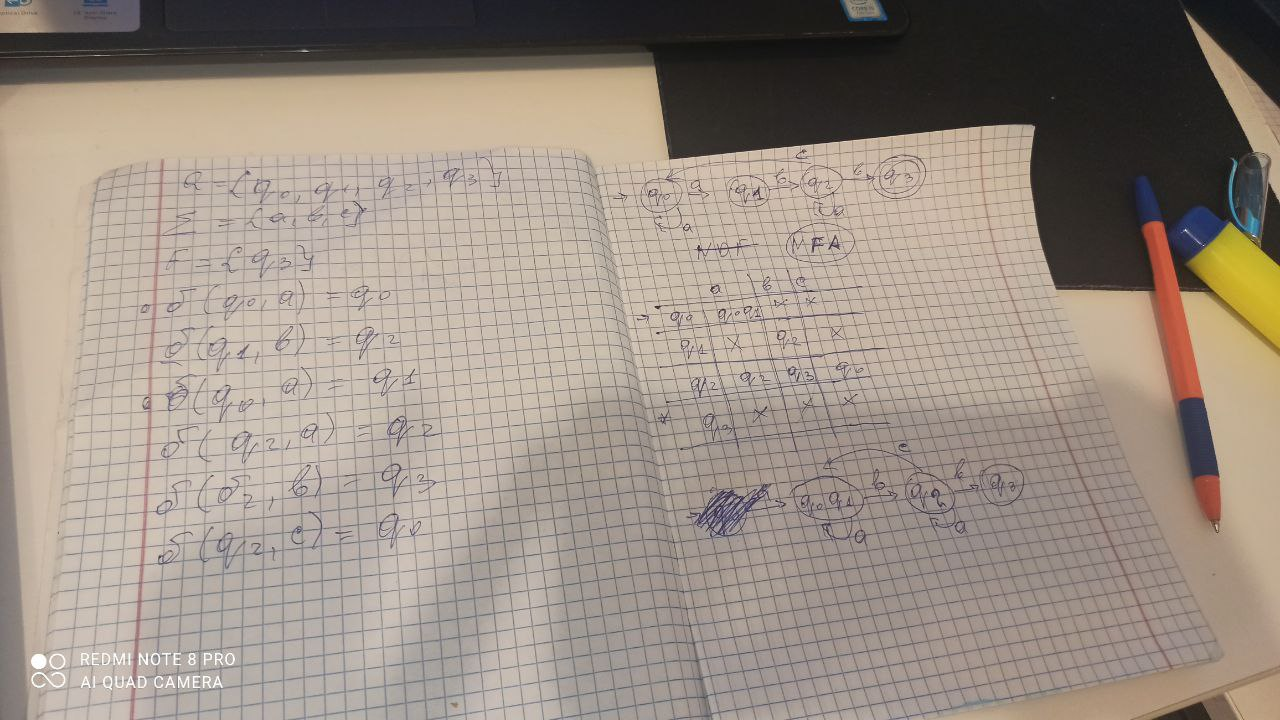 Q = {q0, q1, q2, q3}
Σ = {a, b, c}
F = {q3}
δ(q0, a) = q0
δ(q1, b) = q2
δ(q0, a) = q1
δ(q2, a) = q2
δ(δ2, b) = q3
δ(q2, c) = q0
c
→ q0 a → q1 b → q2 b → q3
a a
NFA
a b c
→ q0 q0q1 x x
q1 x q2 x
q2 q2 q3 q0
* q3 x x x
c
→ q0 q1 b → q2 b → q3
a a
REDMI NOTE 8 PRO
AI QUAD CAMERA